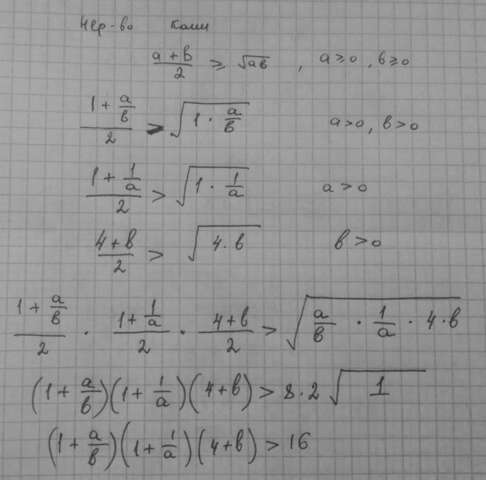 Нер-во Коши
(a+b)/2 ≥ √(ab) , a≥0 , b≥0
(1 + a/b)/2 > √(1 · a/b) a>0, b>0
(1 + 1/a)/2 > √(1 · 1/a) a>0
(4+b)/2 > √(4·b) b>0
(1 + a/b)/2 · (1 + 1/a)/2 · (4+b)/2 > √(a/b · 1/a · 4·b)
(1 + a/b)(1 + 1/a)(4+b) > 8·2 √1
(1 + a/b)(1 + 1/a)(4+b) > 16